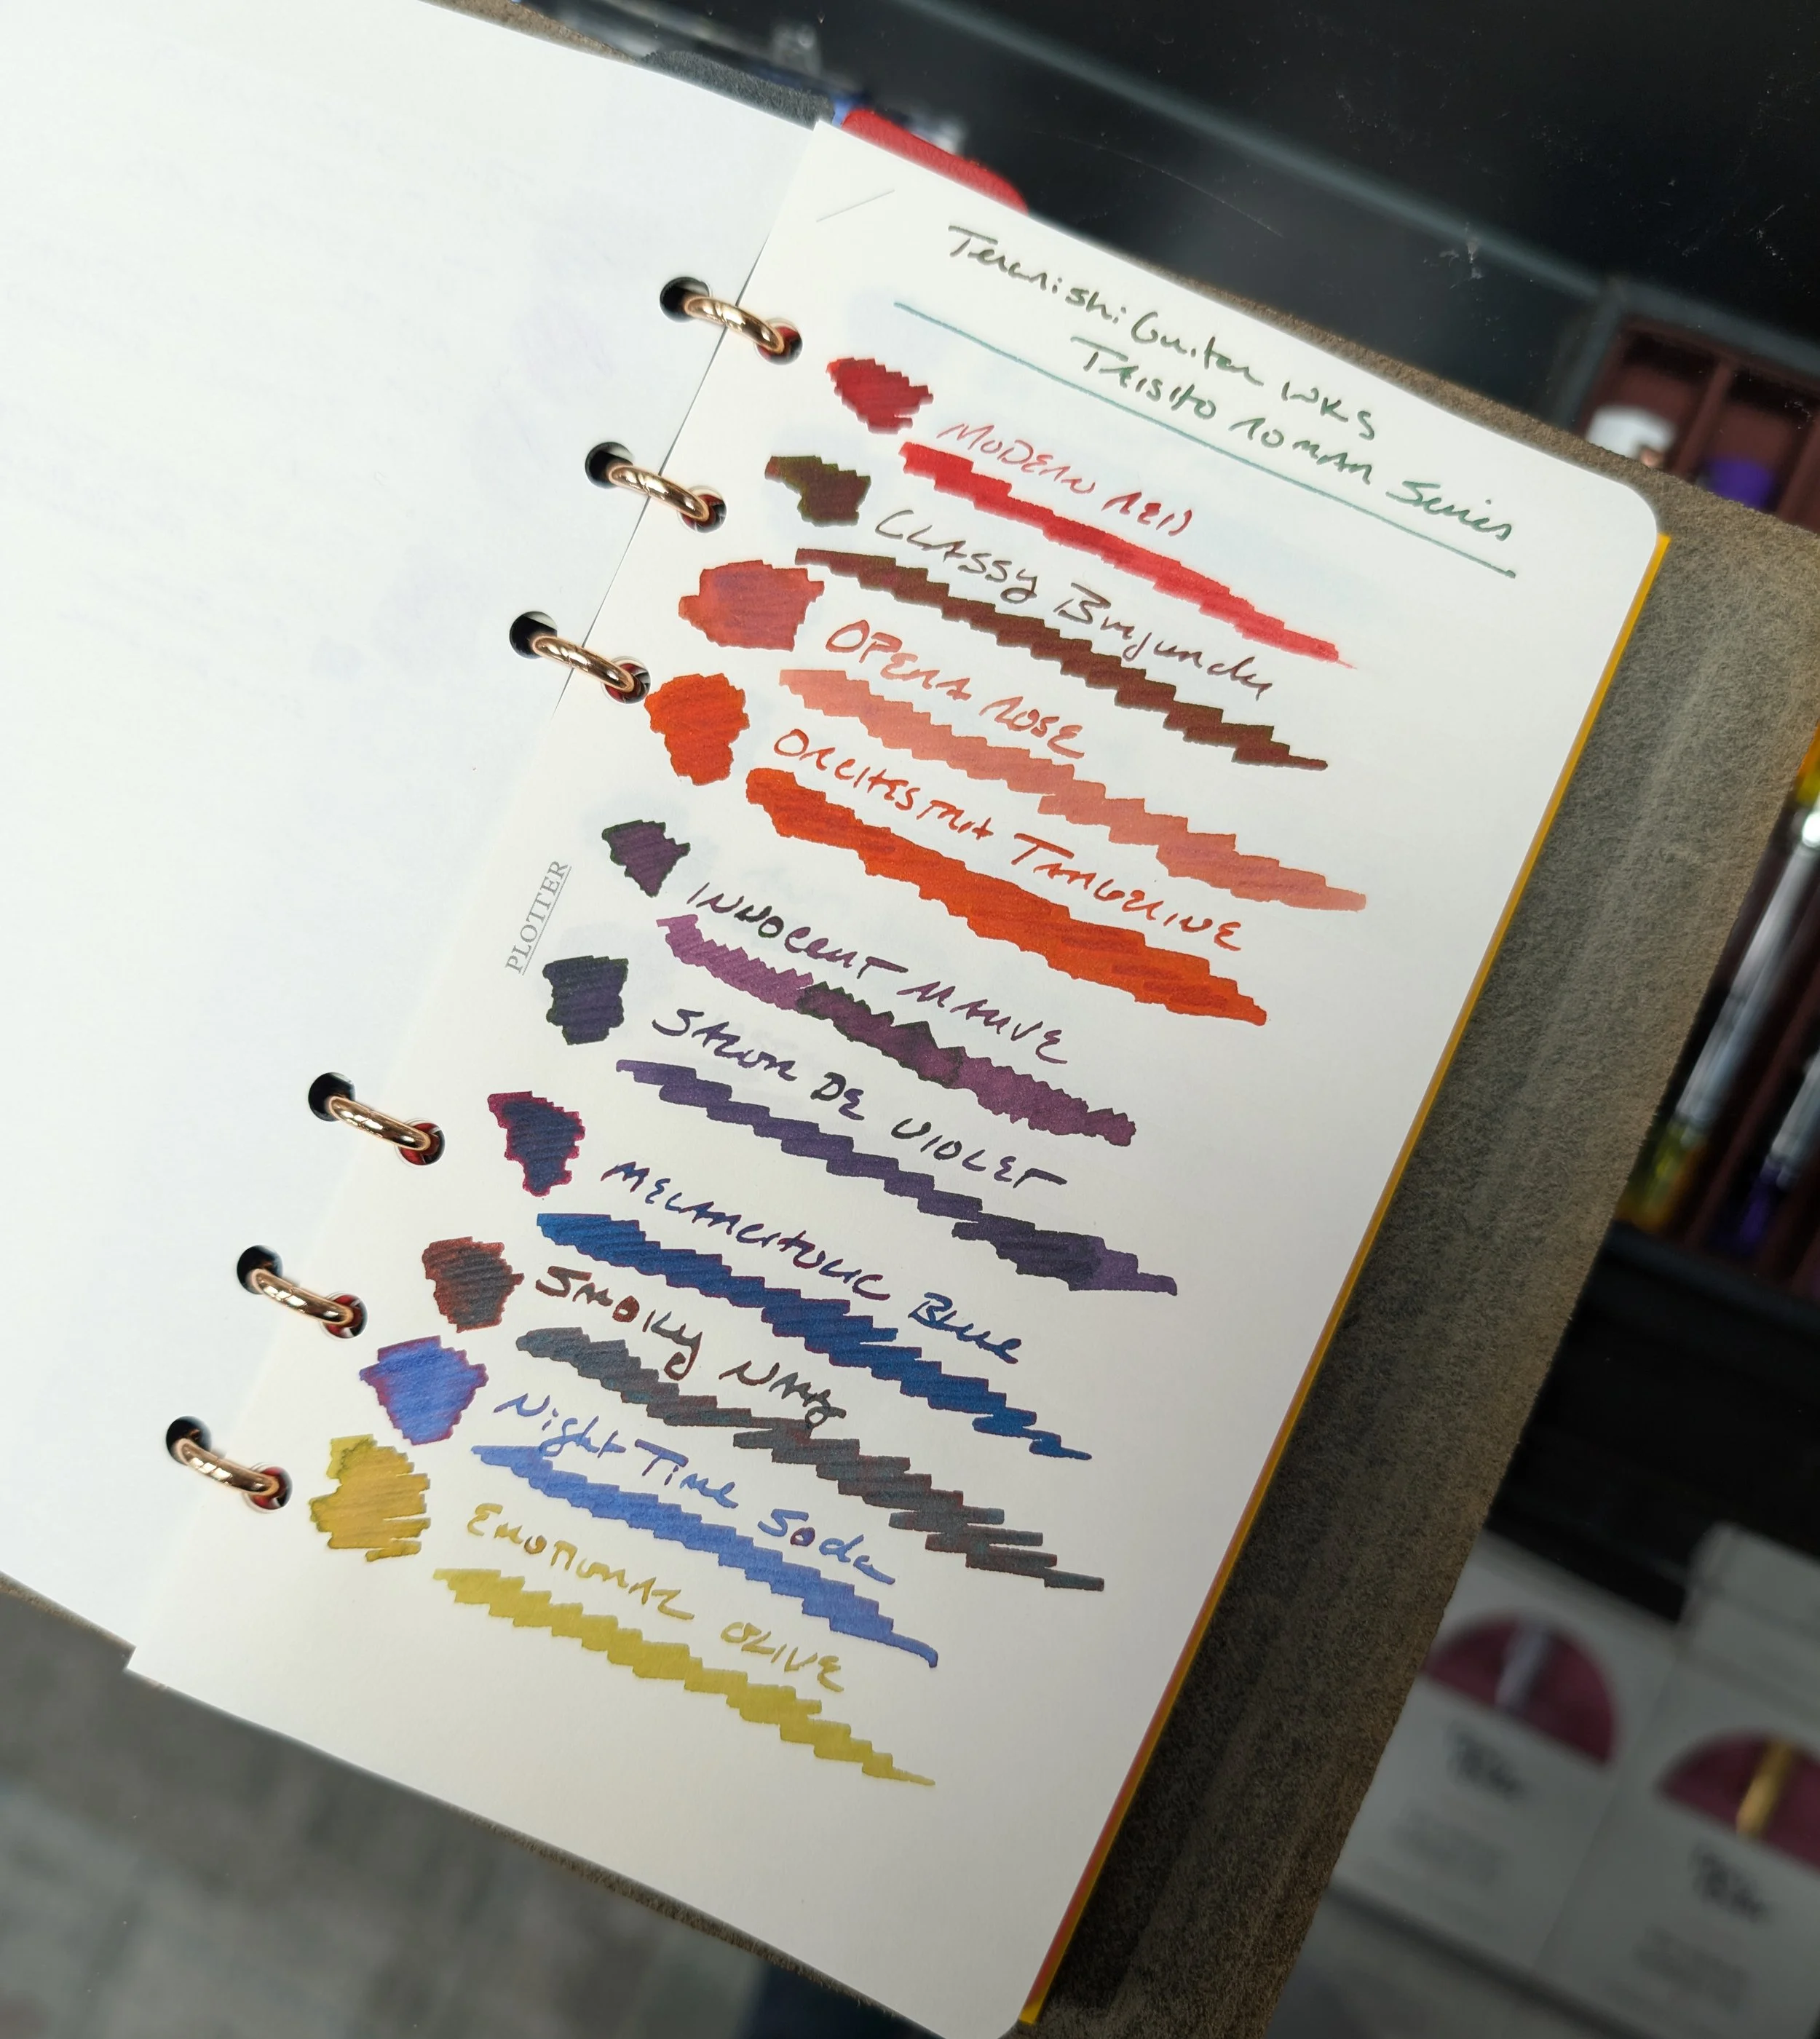 Teranishi Guitar WKS
TAISHO ROMAN Series
MODERN RED
CLASSY Burgundy
OPERA ROSE
ORCHESTRA TANGERINE
INNOCENT MAUVE
SALON DE VIOLET
MELANCHOLIC BLUE
SMOKY NAVY
Night Time Soda
EMOTIONAL OLIVE
PLOTTER